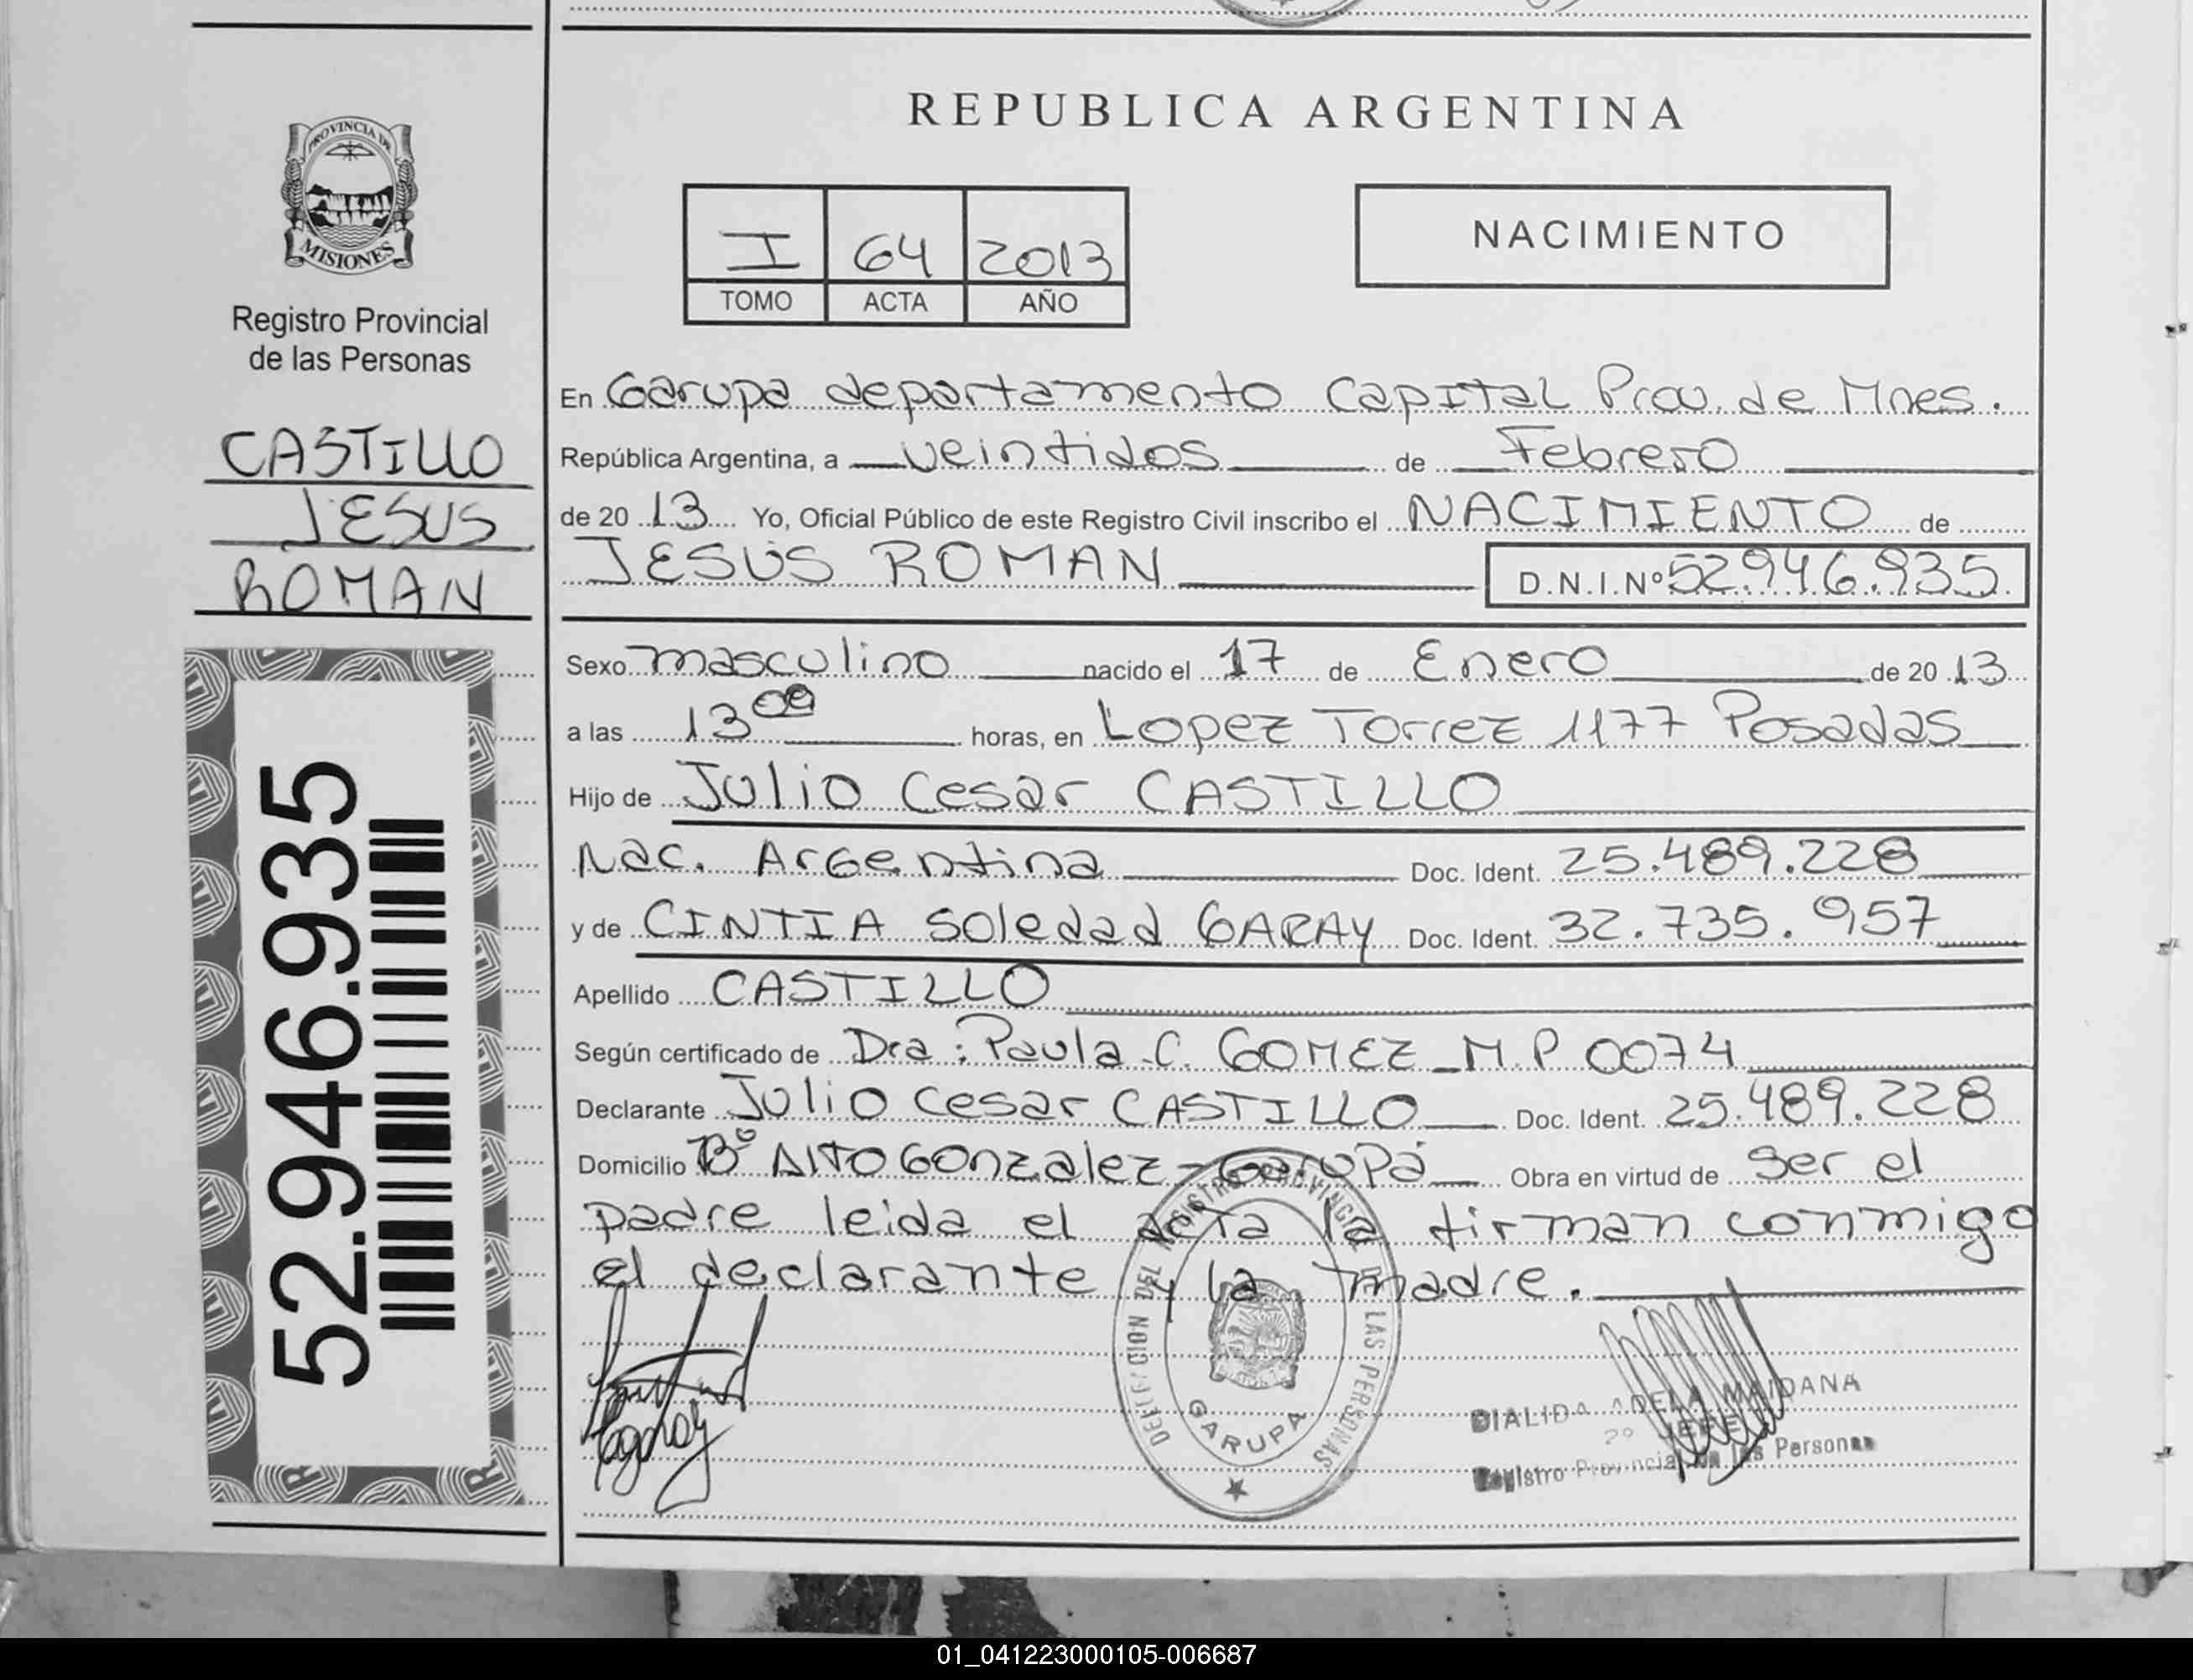 PROVINCIA DE
MISIONES
Registro Provincial
de las Personas
CASTILLO
JESUS
ROMAN
52.946.935
REPUBLICA ARGENTINA
I 64 2013
TOMO ACTA AÑO
NACIMIENTO
En Garupa departamento Capital Prov. de Mnes.
República Argentina, a veintidos de Febrero
de 20 13 Yo, Oficial Público de este Registro Civil inscribo el NACIMIENTO de
JESUS ROMAN D.N.I.Nº 52.946.935
Sexo masculino nacido el 17 de Enero de 20 13
a las 13 00 horas, en Lopez Torrez 1177 Posadas
Hijo de Julio Cesar CASTILLO
Nac. Argentina Doc. Ident. 25.489.228
y de CINTIA Soledad GARAY Doc. Ident. 32.735.957
Apellido CASTILLO
Según certificado de Dra: Paula C. GOMEZ M.P 0074
Declarante Julio Cesar CASTILLO Doc. Ident. 25.489.228
Domicilio Bº Alto Gonzalez - Garupá Obra en virtud de ser el
padre leida el acta la firman conmigo
el declarante y la madre.
DELEGACION DEL REGISTRO PROVINCIAL DE LAS PERSONAS
GARUPA
DIALIDA ADELA MAIDANA
JEFE
Registro Provincial de las Personas
01_041223000105-006687